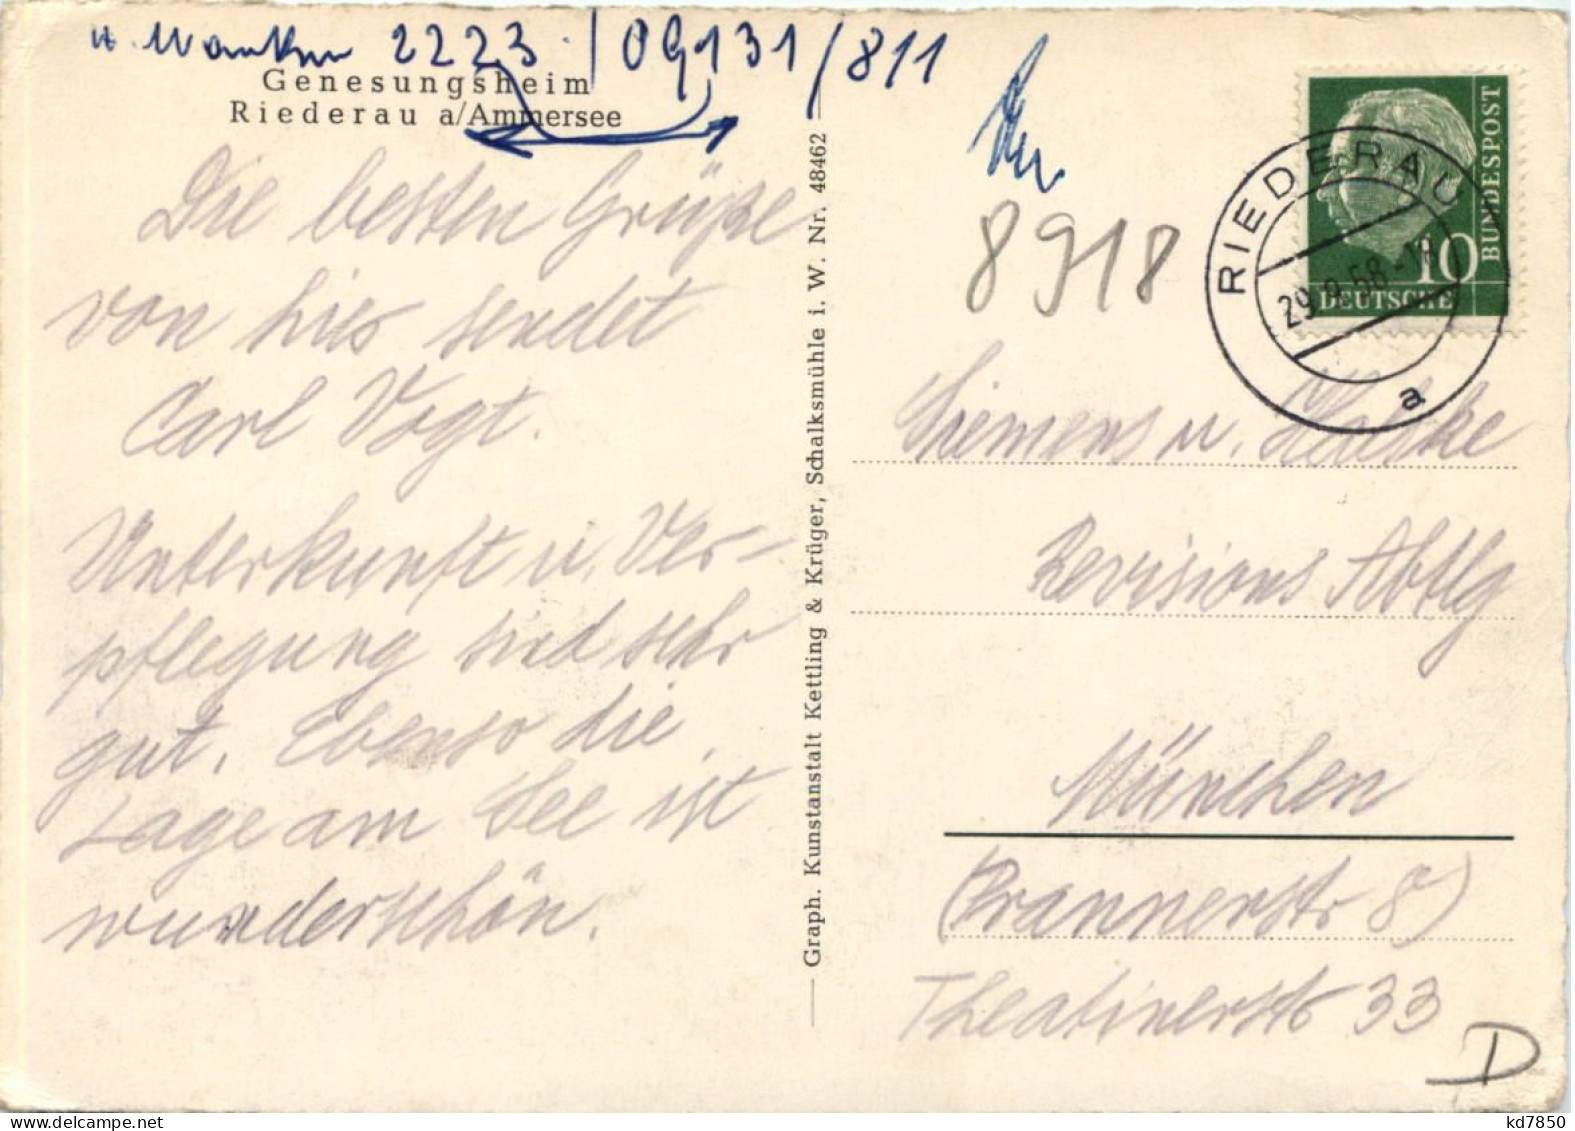 2223 / 09131 / 811
Genesungsheim
Riederau a/Ammersee
Die besten Grüße
von hier sendet
Carl Vogt.
Unterkunft u. Ver-
pflegung sind sehr
gut. Ebenso die
Lage am See ist
wunderschön.
Graph. Kunstanstalt Kettling & Krüger, Schalksmühle i. W. Nr. 48462
8918
RIEDERAU
29.9.58-18
a
10
DEUTSCHE
BUNDESPOST
Siemens u. Halske
Revisions Abtlg
München
(Prannerstr 8)
Theatinerstr 33
D
kd7850
www.delcampe.net